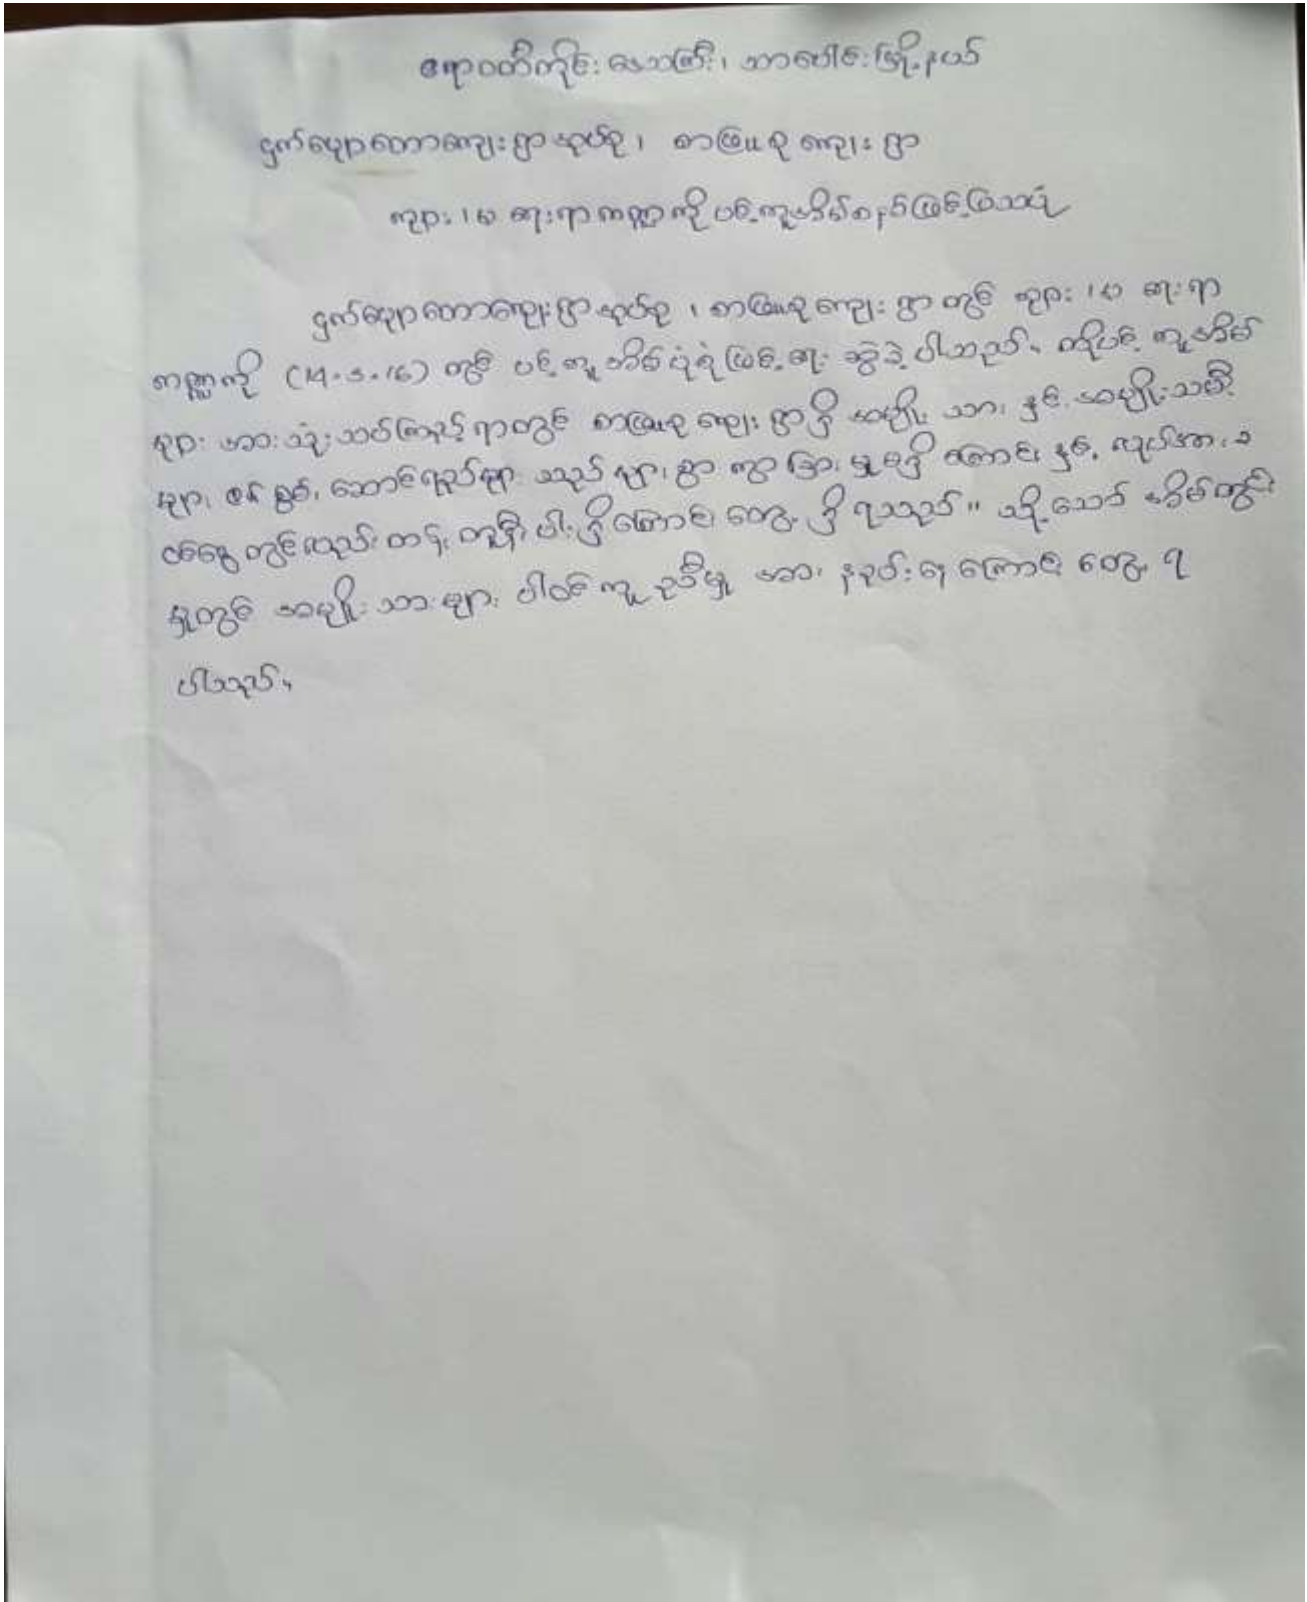 ဧရာဝတီတိုင်းဒေသကြီး၊ သာပေါင်းမြို့နယ်
ငှက်ပျောတောကျေးရွာအုပ်စု၊ စာဖြူစုကျေးရွာ
ကျား၊မ ရေးရာကဏ္ဍကို ပင့်ကူအိမ်စနစ်ဖြင့်ပြသပုံ
ငှက်ပျောတောကျေးရွာအုပ်စု၊ စာဖြူစုကျေးရွာတွင် ကျား၊မ ရေးရာ
ကဏ္ဍကို (14.3.16) တွင် ပင့်ကူအိမ်ပုံစံဖြင့် ရေးဆွဲခဲ့ပါသည်။ ထိုပင့်ကူအိမ်
များအား သုံးသပ်ကြည့်ရာတွင် စာဖြူစုကျေးရွာရှိ အမျိုးသား နှင့် အမျိုးသမီး
များ ဆောင်ရွက်များသည် များစွာ ကွာခြားမှုမရှိကြောင်း နှင့် လုပ်အားခ
ငွေတွင်လည်း တန်းတူညီပါးရှိကြောင်း တွေ့ရှိရသည်။ သို့သော် အိမ်တွင်း
မှုတွင် အမျိုးသားများ ပါဝင်ကူညီမှု အား နည်းနေကြောင်း တွေ့ရ
ပါသည်။